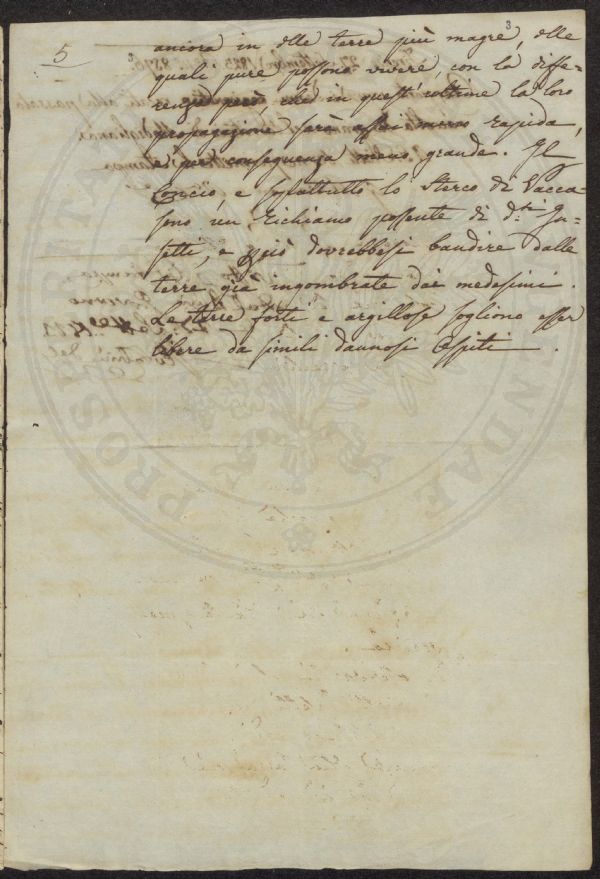 3
5
ancora in delle terre più magre, delle
quali pure possono vivere, con la diffe-
renza però che in quest'ultime la loro
propagazione sarà assai meno rapida,
e per conseguenza meno grande. Il
Concio, e soprattutto lo Sterco di Vacca
sono un richiamo possente di d.ti In-
setti, e ciò dovrebbesi bandire dalle
terre già ingombrate dai medesimi.
Le terre forti e argillose sogliono esser
libere da simili dannosi Ospiti.
PROSPERITATI